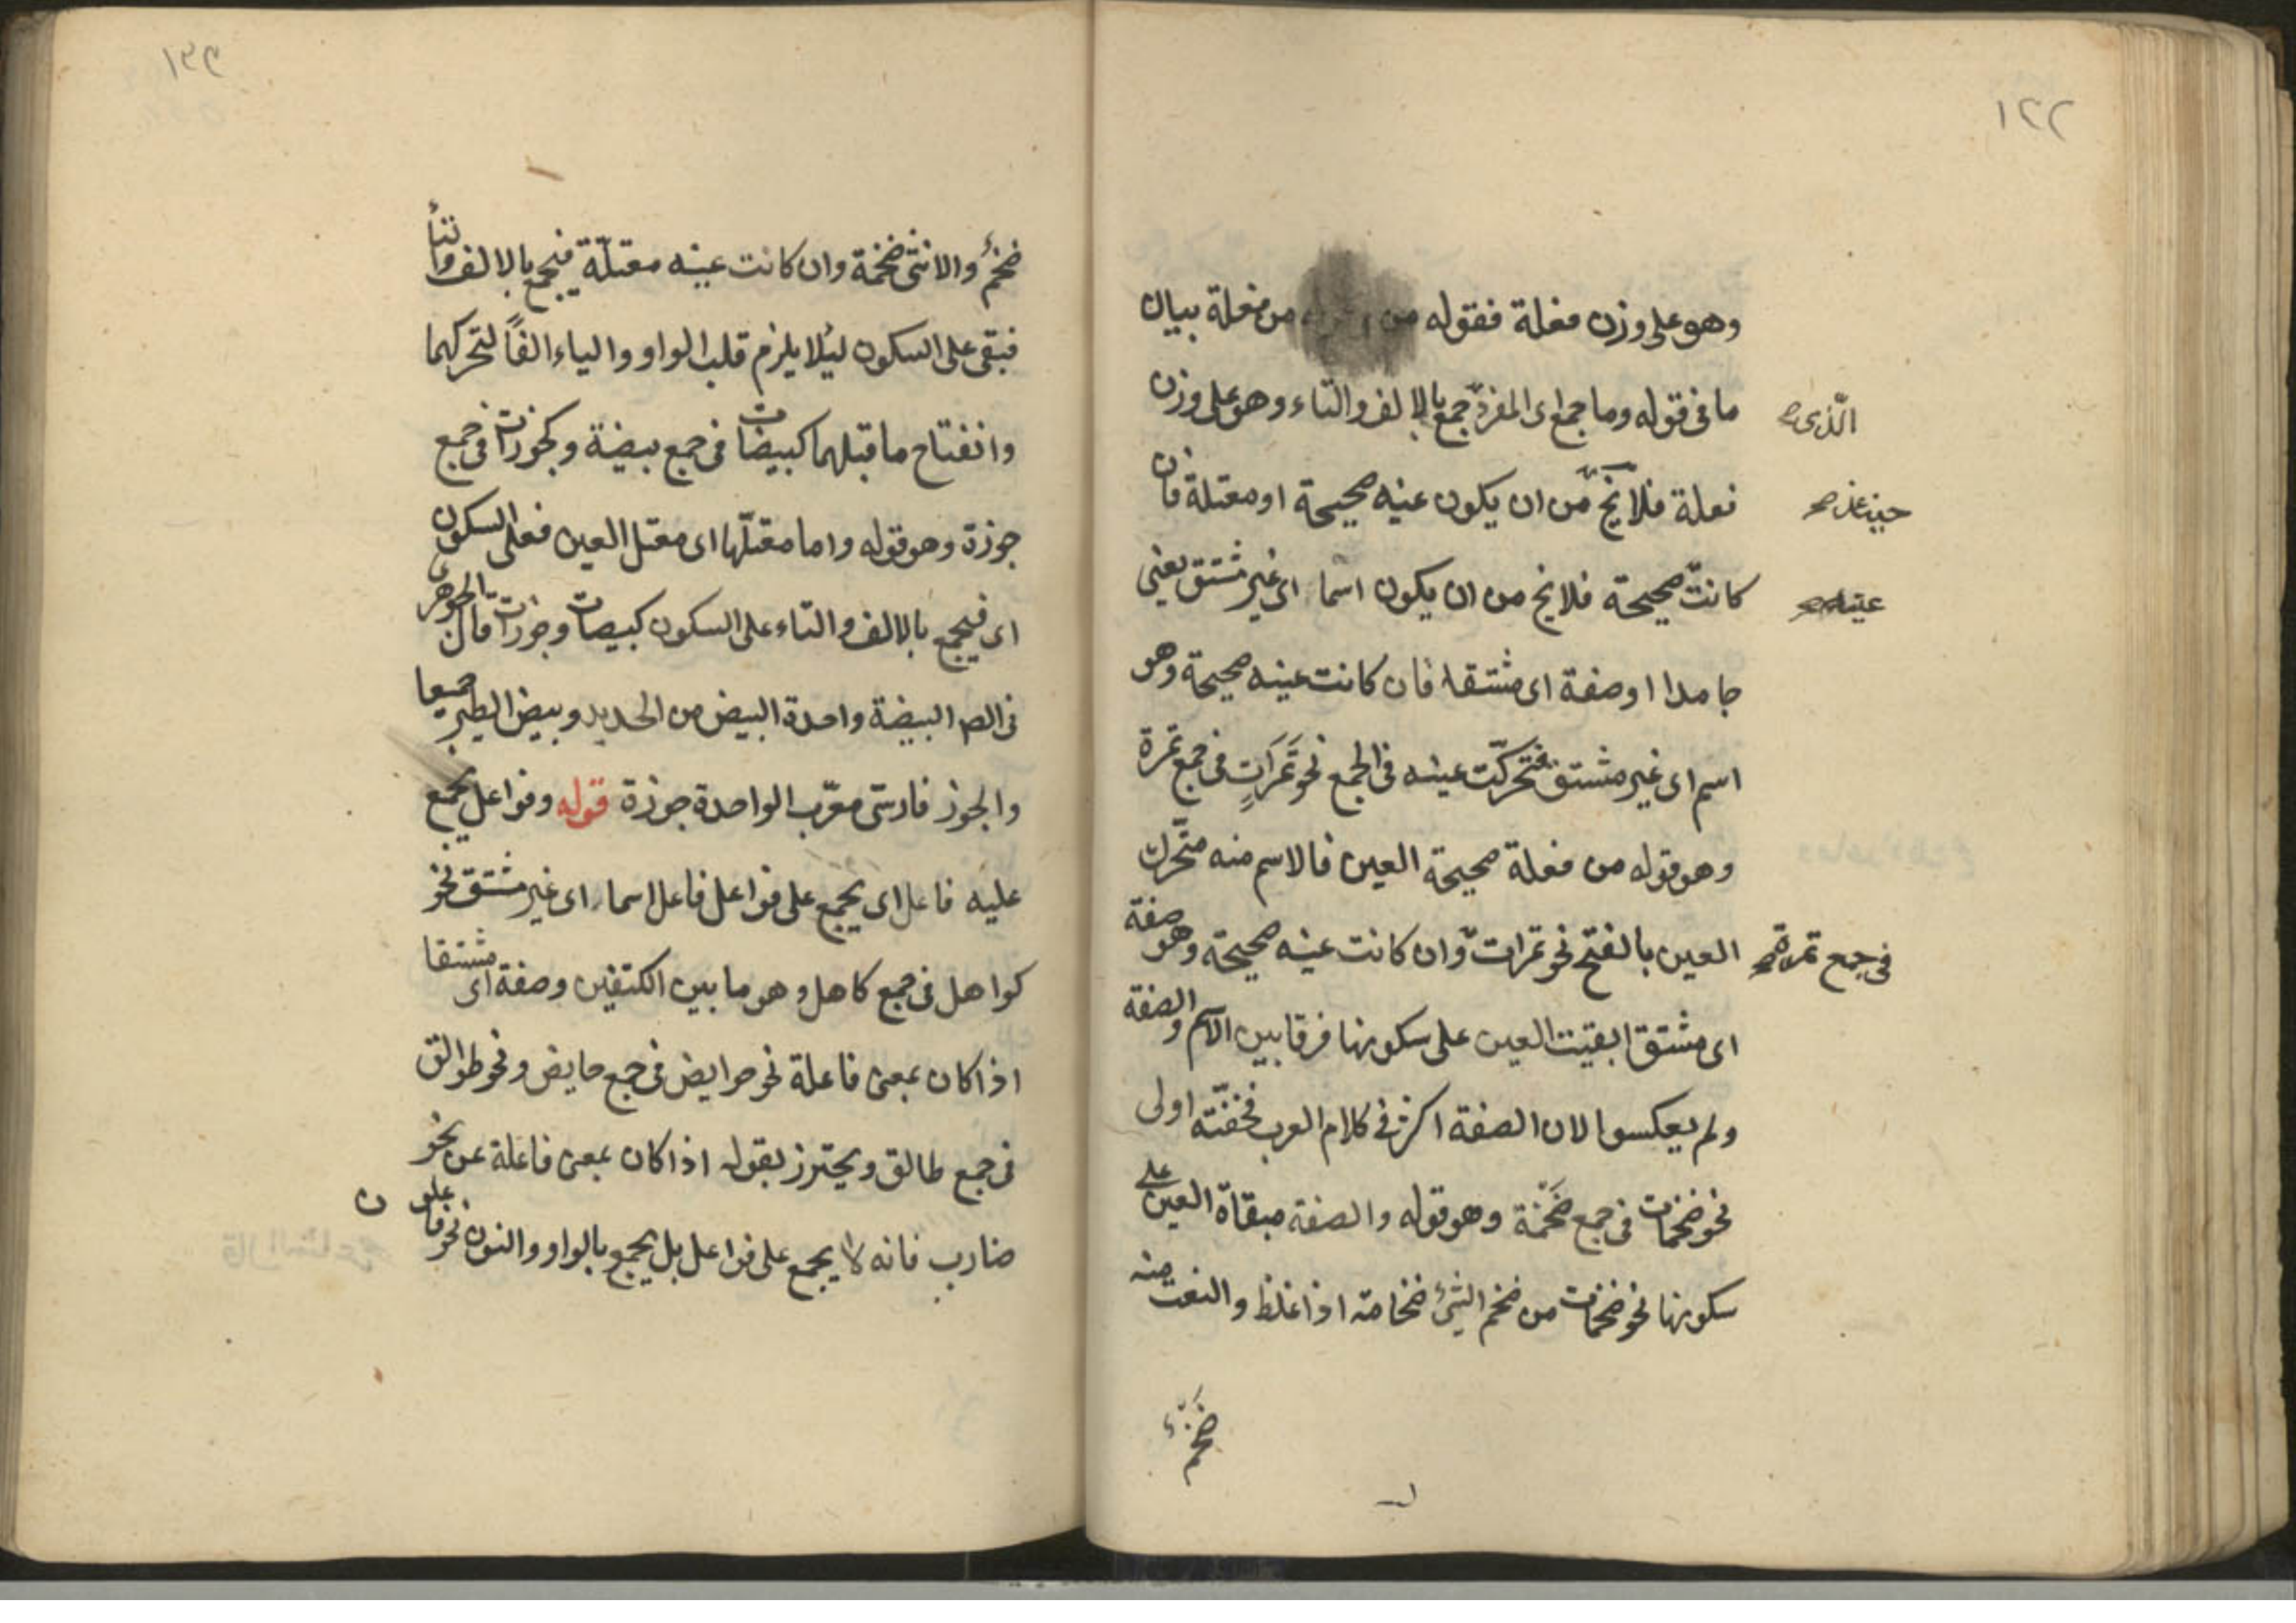 ١٢٢
وهو على وزن فعلة فقوله من فعلة بيان
ما فى قوله وما جمع اى المفرد جمع بالالف والتاء وهو على وزن
الذى صح
فعلة فلا يخ من ان يكون عينه صحيحة او معتلة فان
حينئذ صح
كانت صحيحة فلا يخ من ان يكون اسما اى غير مشتق يعنى
عينه صح
جامدا او صفة اى مشتقا فان كانت عينه صحيحة وهو
اسم اى غير مشتق فتحركت عينه فى الجمع نحو تَمَرَاتٍ فى جمع تمرة
وهو قوله من فعلة صحيحة العين فالاسم منه متحرك
العين بالفتح نحو تمرات وان كانت عينه صحيحة وهو صفة
فى جمع تمرة صح
اى مشتق ابقيت العين على سكونها فرقا بين الاسم والصفة
ولم يعكسوا لان الصفة اكثر فى كلام العرب فخفته اولى
نحو ضخمات فى جمع ضَخْمَة وهو قوله والصفة مبقاة العين على
سكونها نحو ضخمات من ضخم الشئ ضخامة اذا غلظ والنعت منه
ضخم
١٣٩
ضخمٌ والانثى ضخمة وان كانت عينه معتلّة فيجمع بالالف والتاء
فبقى على السكون ليلا يلزم قلب الواو والياء الفاً لتحركهما
وانفتاح ما قبلهما كبيضات فى جمع بيضة وكجوزات فى جمع
جوزة وهو قوله واما معتلّها اى معتل العين فعلى السكون
اى فيجمع بالالف والتاء على السكون كبيضات وجوزات قال الجوهرى
فى الص البيضة واحدة البيض من الحديد وبيض الطير جميعا
والجوز فارسى معرّب الواحدة جوزة قوله وفواعل يجمع
عليه فاعل اى يجمع على فواعل فاعل اسما اى غير مشتق نحو
كواهل فى جمع كاهل وهو ما بين الكتفين وصفة اى مشتقا
اذا كان بمعنى فاعلة نحو حوايض فى جمع حايض ونحو طوالق
فى جمع طالق ويحترز بقوله اذا كان بمعنى فاعلة عن نحو
ضارب فانه لا يجمع على فواعل بل يجمع بالواو والنون نحو فاعلون